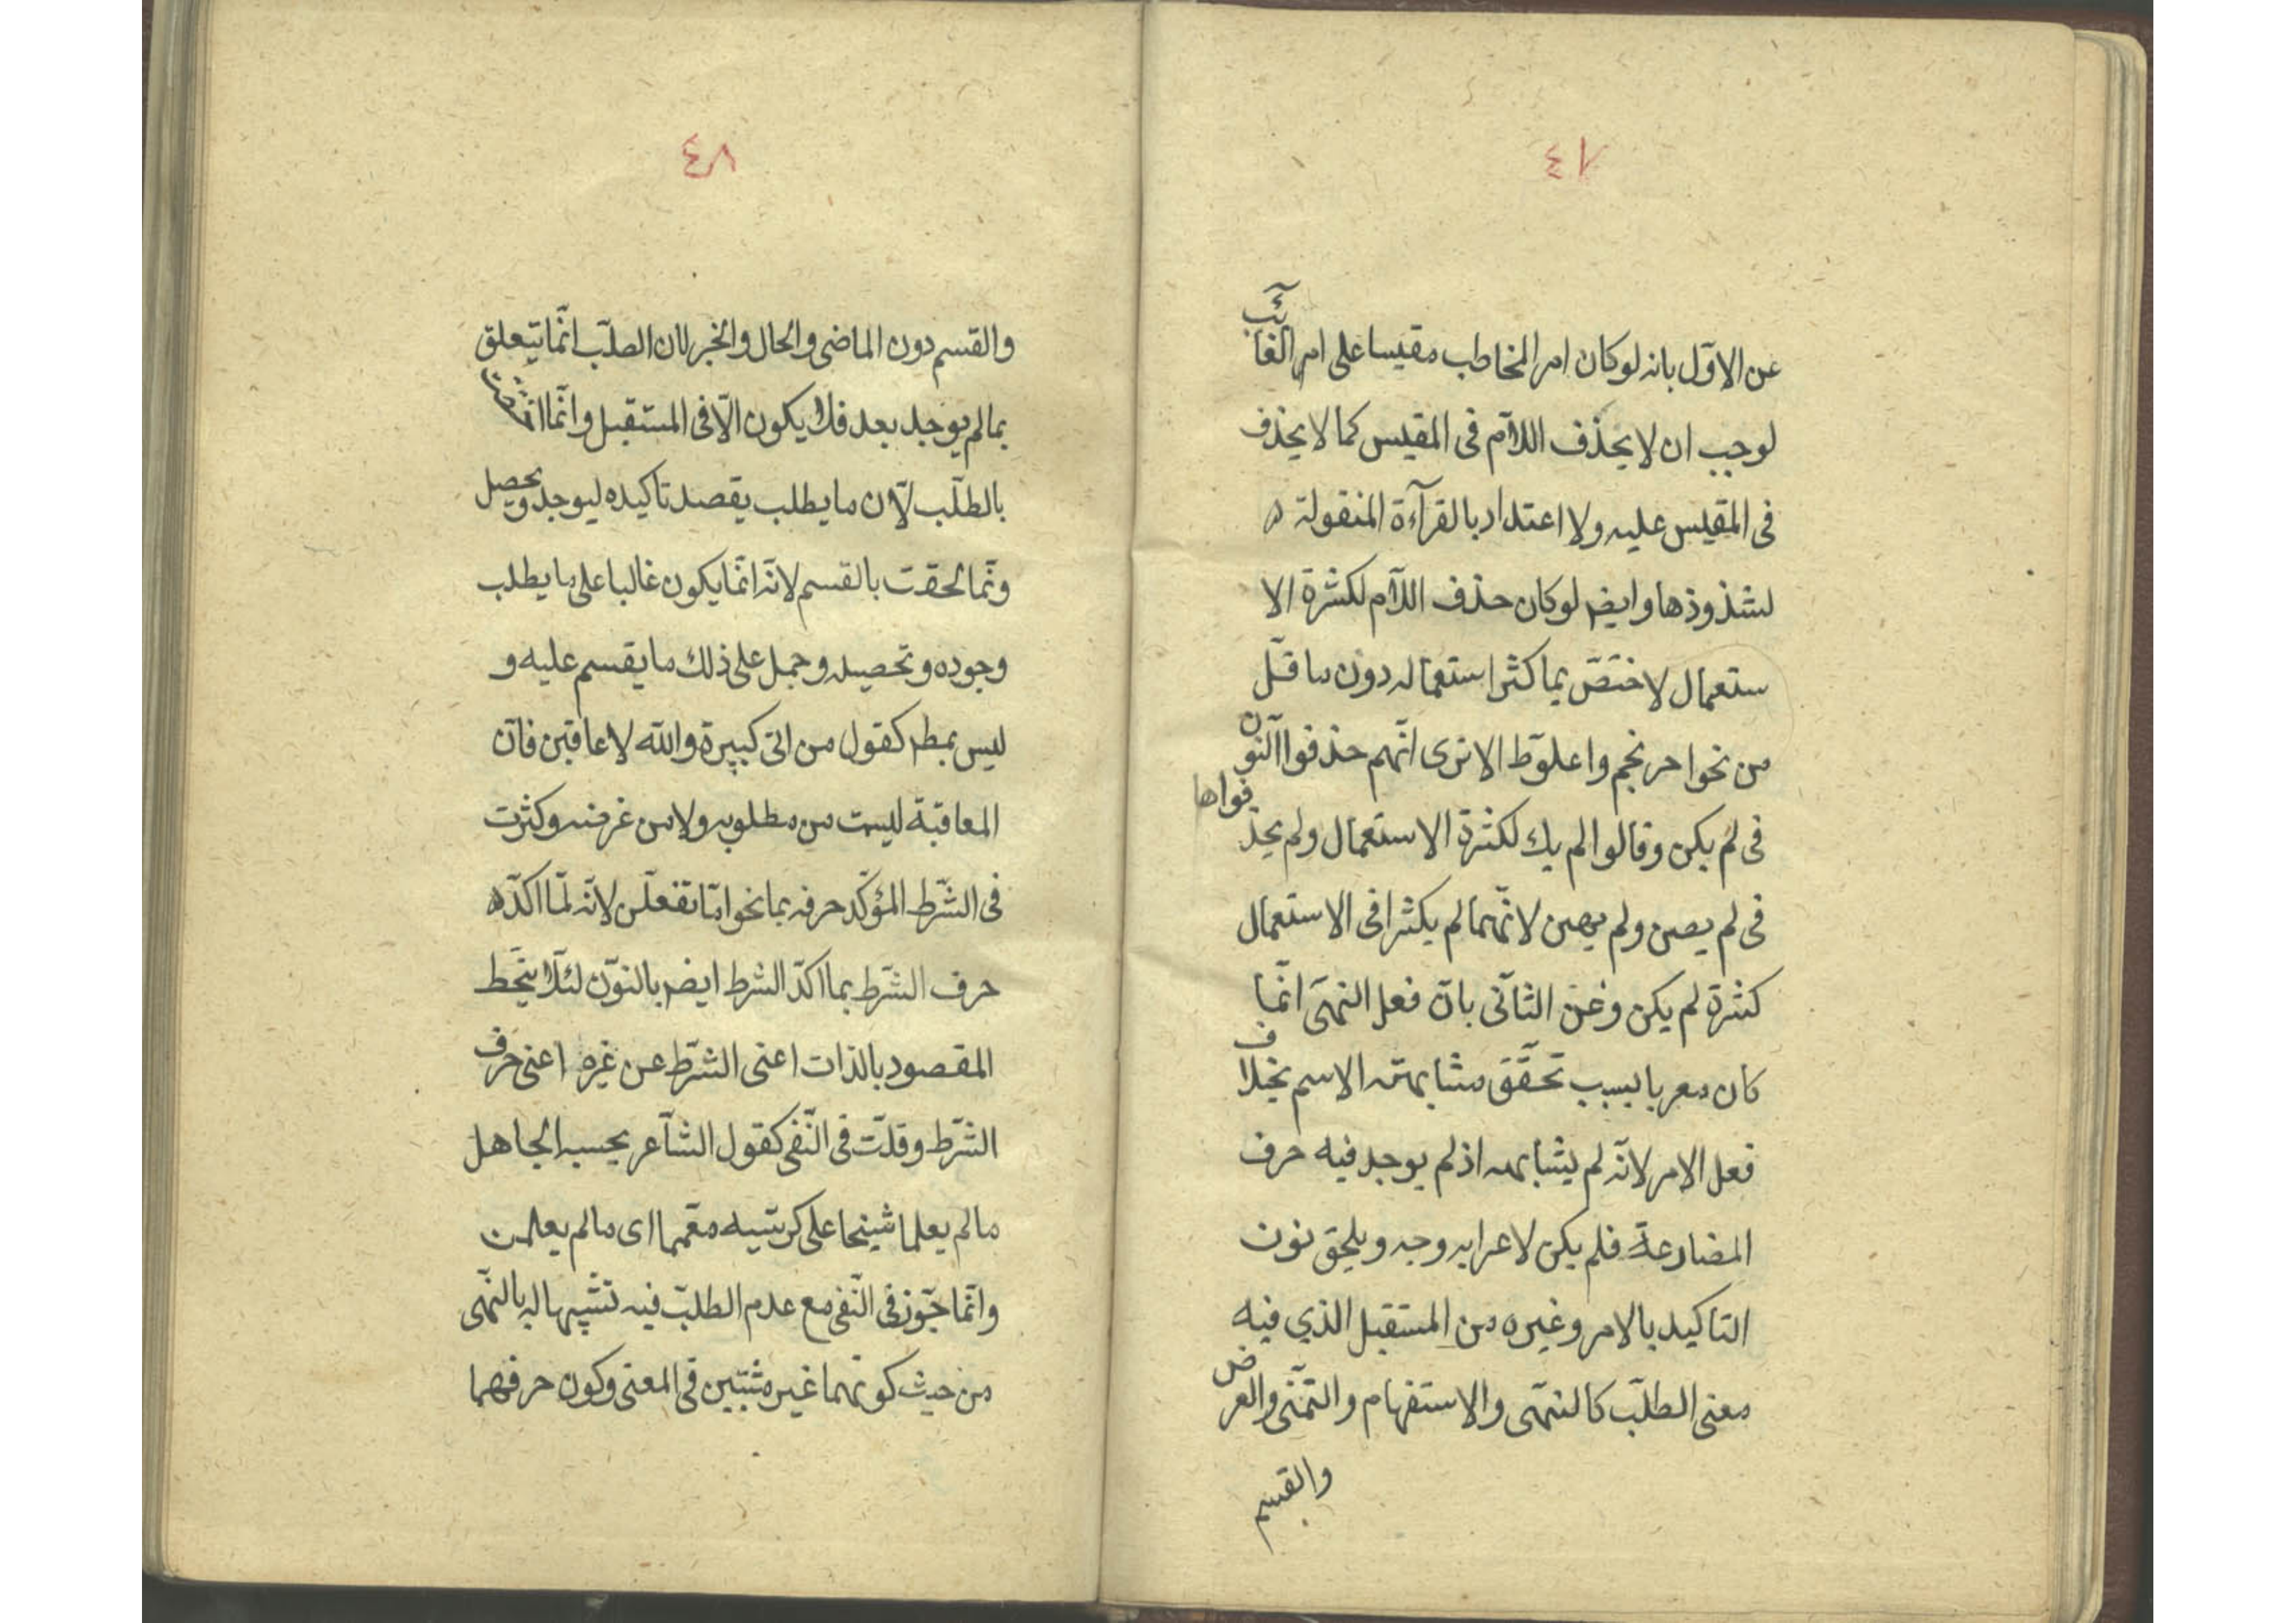 ٤٧
عن الاوّل بانه لو كان امر المخاطب مقيسا على امر الغائب
لوجب ان لا يحذف اللاّم فى المقيس كما لا يحذف
فى المقيس عليه ولا اعتداد بالقرآءة المنقولة
لشذوذها وايضر لو كان حذف اللاّم لكثرة الا
ستعمال لاختصّ بما كثر استعماله دون ما قلّ
من نحو احرنجم واعلوّط الا ترى انّهم حذفوا النّون
فى لم يكن وقالوا لم يك لكثرة الاستعمال ولم يحذفواها
فى لم يصن ولم يهن لانّهما لم يكثرا فى الاستعمال
كثرة لم يكن وعن الثّانى بانّ فعل النهى انّما
كان معربا بسبب تحقّق مشابهته الاسم بخلاف
فعل الامر لانّه لم يشابهه اذ لم يوجد فيه حرف
المضارعة فلم يكن لاعرابه وجه ويلحق نون
التاكيد بالامر وغيره من المستقبل الذي فيه
معنى الطلّب كالنّهى والاستفهام والتمّنى والعرض
والقسم
٤٨
والقسم دون الماضى والحال والخبر لان الطلّب انّما يتعلق
بمالم يوجد بعد فلا يكون الاّ فى المستقبل وانّما
بالطلّب لاّن ما يطلب يقصد تاكيده ليوجد ويحصل
ونّما لحقت بالقسم لانّه انّما يكون غالبا على ما يطلب
وجوده وتحصيله وحمل على ذلك ما يقسم عليه و
ليس بمطر كقول من اتى كبيرة والله لاعاقبن فانّ
المعاقبة ليست من مطلوبه ولا من غرضه وكثرت
فى الشّرط المؤكّد حرفه بما نحو امّا تفعلّن لانّه لمّا اكدّه
حرف الشّرط بما اكدّ الشرط ايضر بالنّون لئلاّ ينحّط
المقصود بالذات اعنى الشّرط عن غيره اعنى حرف
الشّرط وقلّت فى النّفى كقول الشّاعر يحسبه الجاهل
مالم يعلما شيخا على كرسّيه معمّما اى مالم يعلمن
وانّما جوّز فى النّفى مع عدم الطلبّ فيه تشّبيها له بالنّهى
من حيث كونهما غير مثبتين فى المعنى وكون حرفهما